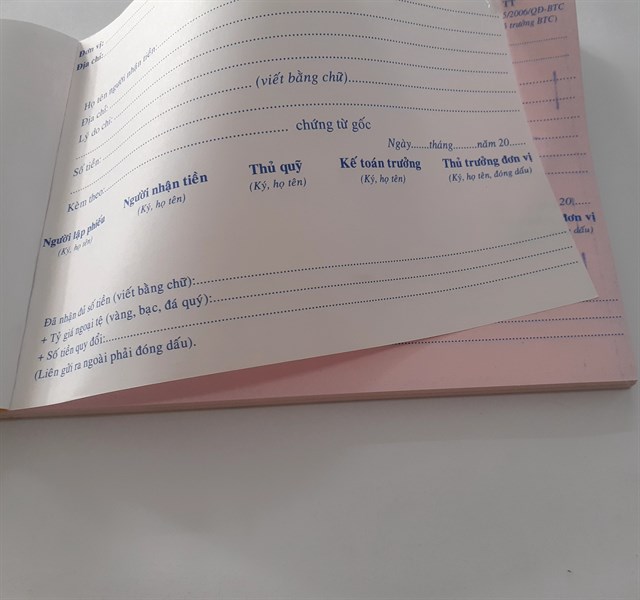 Đơn vị:
Địa chỉ:
Họ tên người nhận tiền:
Địa chỉ:
Lý do chi:
Số tiền: (viết bằng chữ)
Kèm theo: chứng từ gốc
Ngày......tháng.........năm 20......
Người lập phiếu Người nhận tiền Thủ quỹ Kế toán trưởng Thủ trưởng đơn vị
(Ký, họ tên) (Ký, họ tên) (Ký, họ tên) (Ký, họ tên) (Ký, họ tên, đóng dấu)
Đã nhận đủ số tiền (viết bằng chữ):
+ Tỷ giá ngoại tệ (vàng, bạc, đá quý):
+ Số tiền quy đổi:
(Liên gửi ra ngoài phải đóng dấu).
TT
/2006/QĐ-BTC
trưởng BTC)
20
đơn vị
dấu)